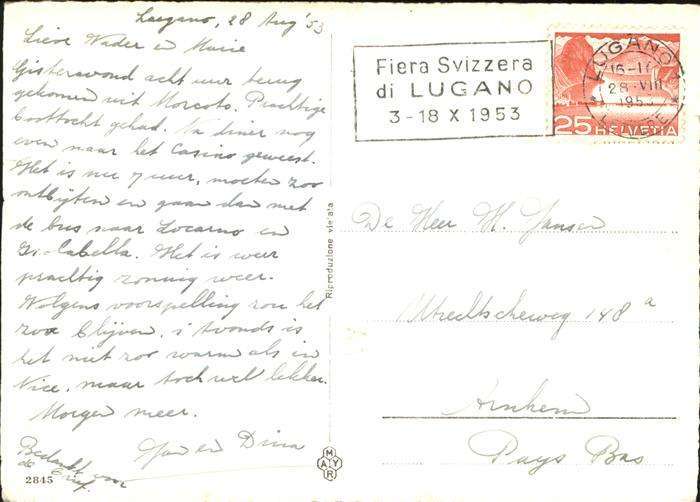 Lugano, 28 Aug '53
Lieve Vader en Marie
Gisteravond acht uur terug
gekomen uit Morcote. Prachtige
boottocht gehad. Na diner nog
even naar het Casino geweest.
Het is nu 7 uur, moeten zoo
ontbijten en gaan dan met
de bus naar Locarno en
Isabella. Het is weer
prachtig zonnig weer.
Volgens voorspelling zou het
zoo blijven, 's avonds is
het niet zoo warm als in
Nice, maar toch wel lekker.
Morgen meer.
Jan en Dina
Bedankt voor
de brief.
2845
MAYR
Riproduzione vietata
Fiera Svizzera
di LUGANO
3-18 X 1953
LUGANO 1
28.VIII
1953
25 HELVETIA
De Heer H. Jansen
Utrechtscheweg 148 a
Arnhem
Pays Bas